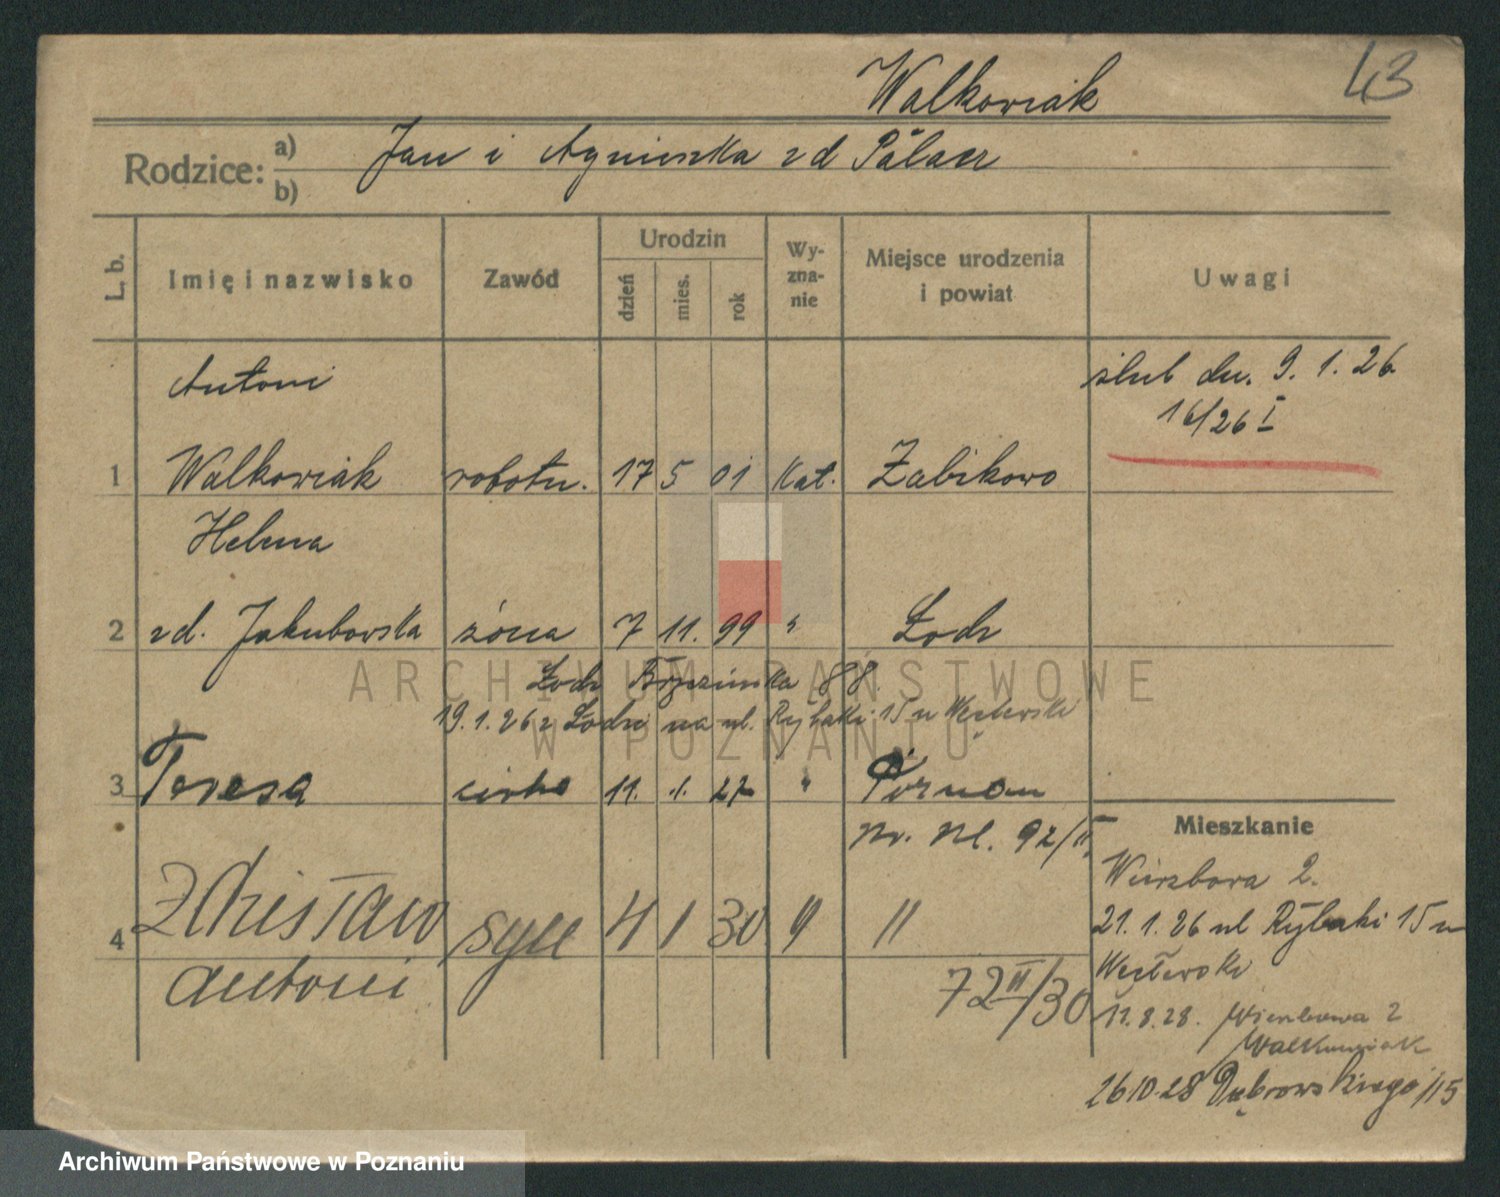 43
Walkowiak
Rodzice: a) b) Jan i Agnieszka zd Palacz
L. b. Imię i nazwisko Zawód Urodzin dzień mies. rok Wy-zna-nie Miejsce urodzenia i powiat Uwagi
Antoni ślub dn. 9. 1. 26.
16/26 I
1 Walkowiak robotn. 17 5 01 kat. Żabikowo
Helena
2 zd. Jakubowska żona 7 11. 99 " Łodz
Łodz Brzezinska 88
19.1.26 z Łodzi na ul. Rybaki 15 u
3 Teresa córka 11. 1. 27 " Poznan
Mieszkanie
92/II
Wierzbowa 2.
4 Zdzisław syn 4 1 30 " "
21.1.26 ul Rybaki 15 u
Antoni
72 II/30
11.8.28. Wierzbowa 2
Walkowiak
26.10.28 Dąbrowskiego 115
ARCHIWUM PAŃSTWOWE
W POZNANIU
Archiwum Państwowe w Poznaniu